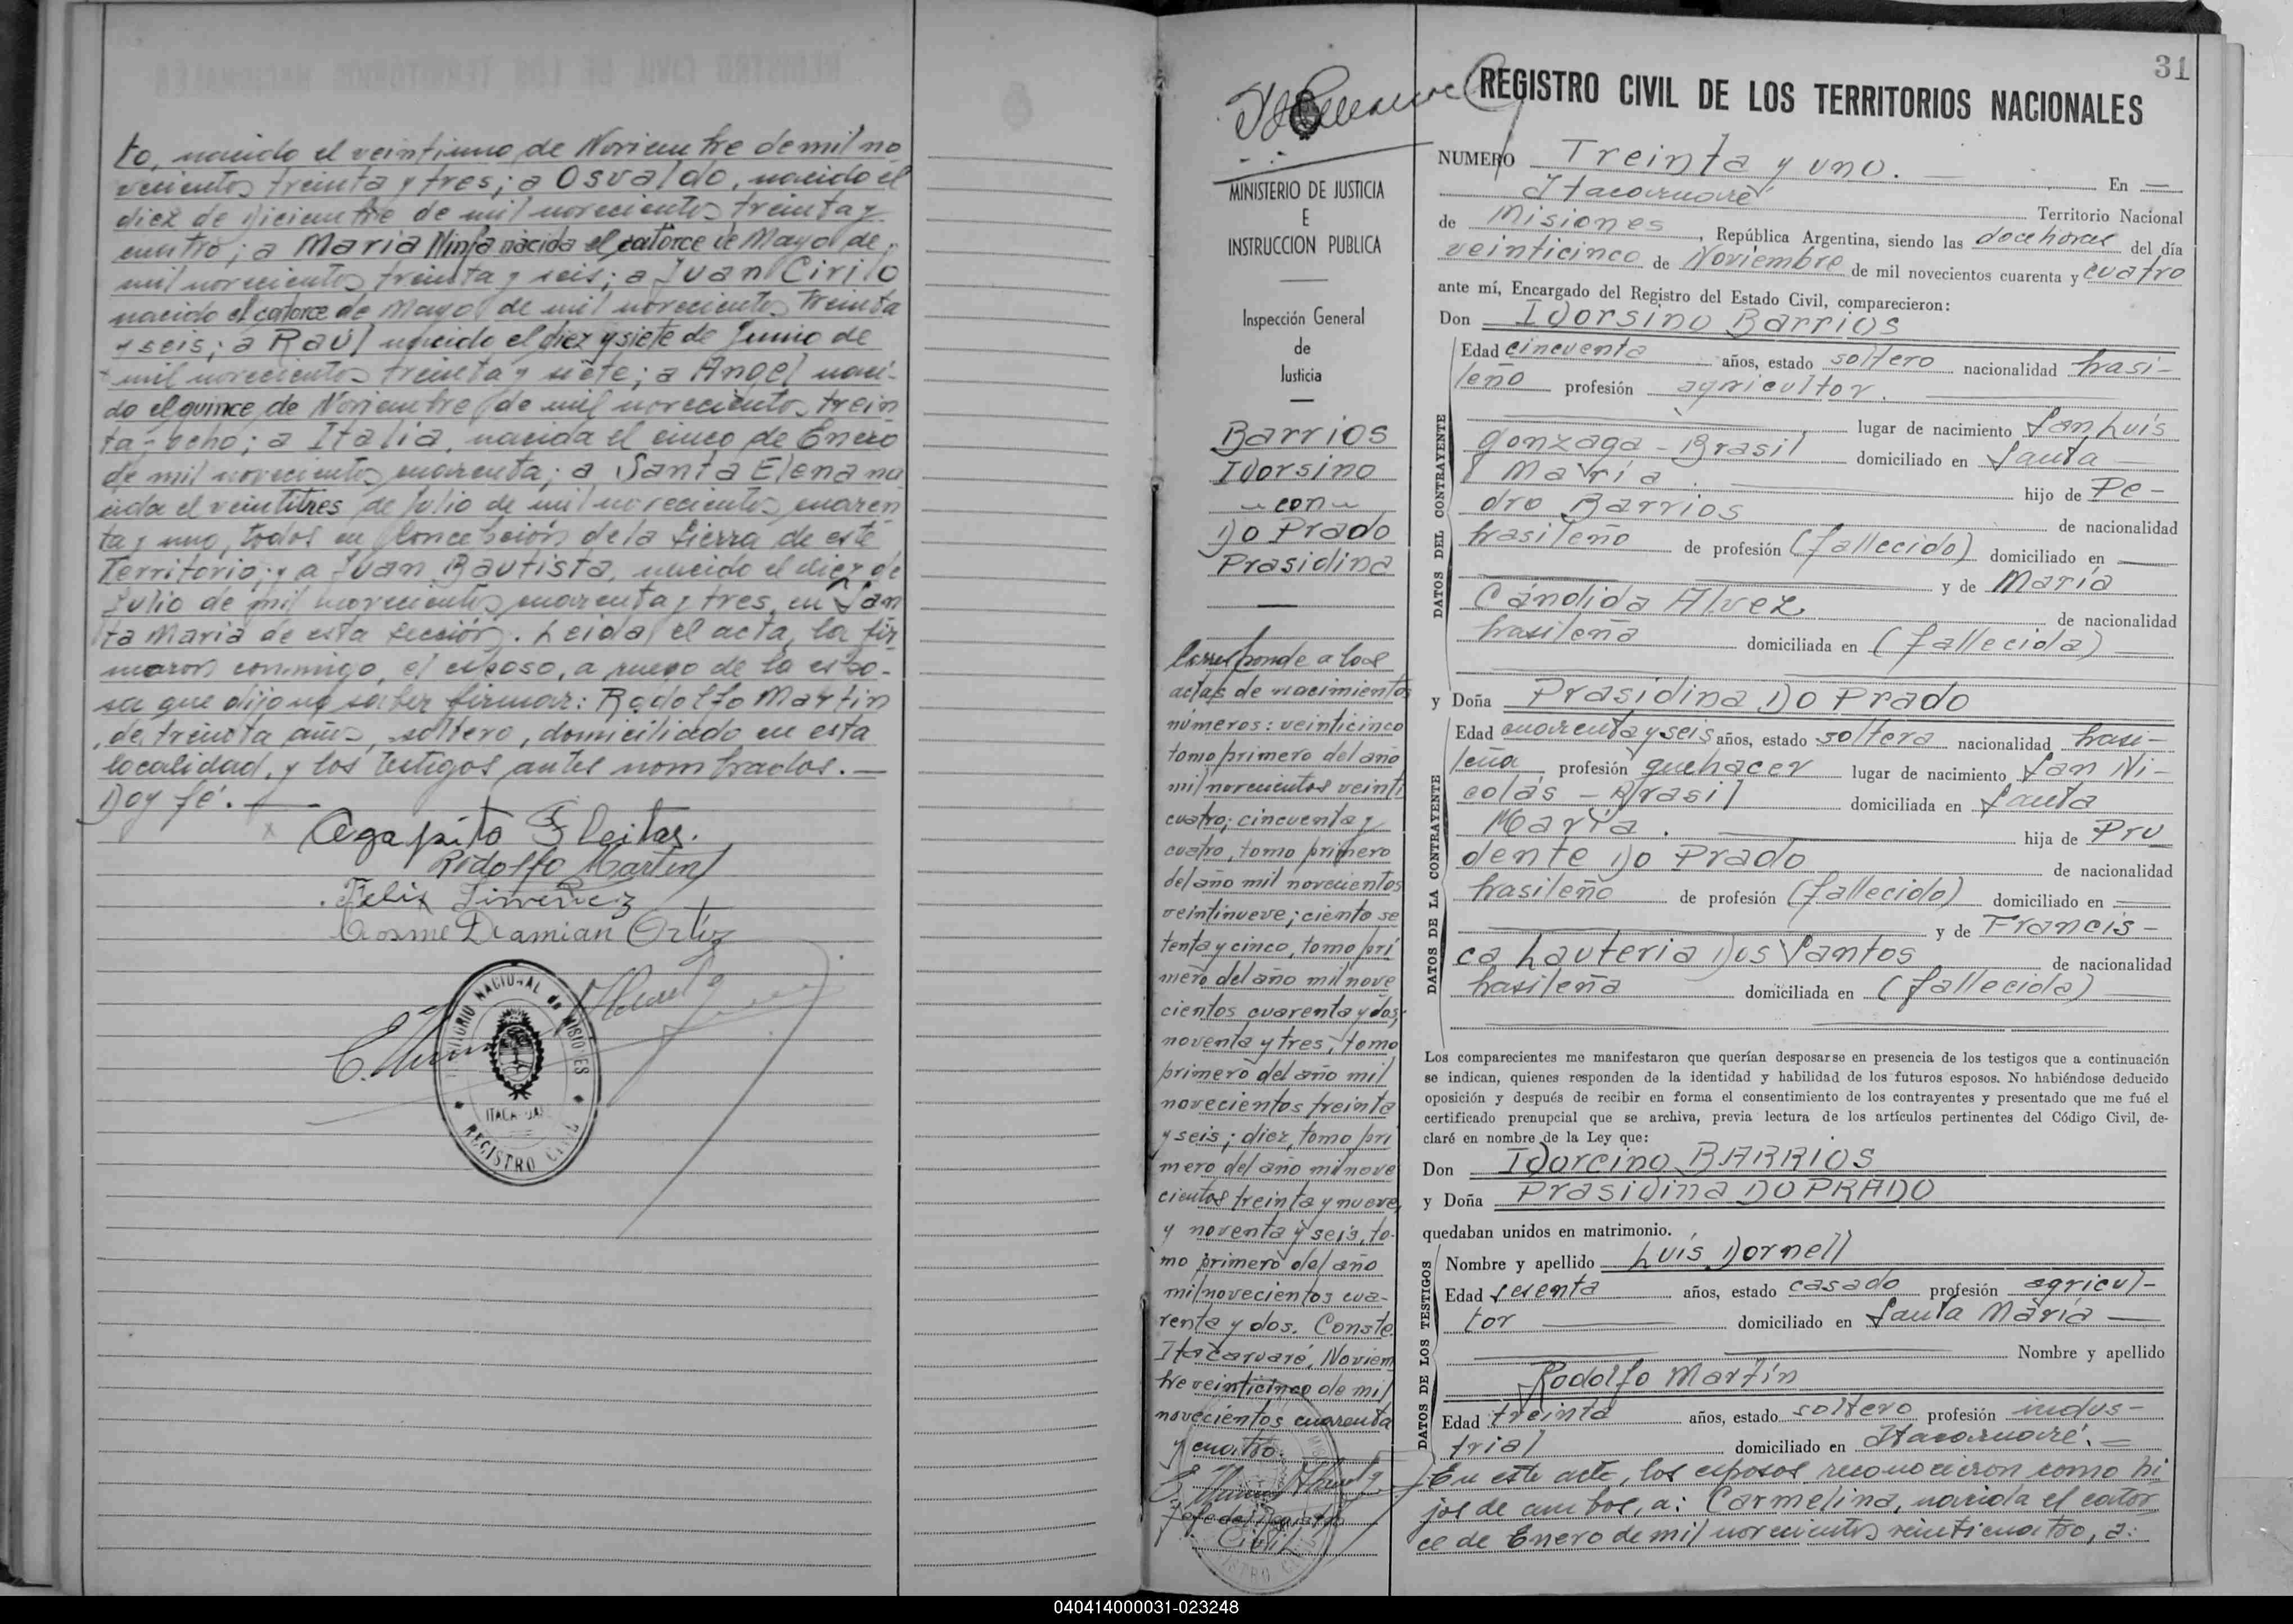 to, nacido el veintiuno de Noviembre de mil no
vecientos treinta y tres; a Osvaldo, nacido el
diez de Diciembre de mil novecientos treinta y
cuatro; a Maria Ninfa nacida el catorce de Mayo de
mil novecientos treinta y seis; a Juan Cirilo
nacido el catorce de Mayo de mil novecientos treinta
y seis; a Raúl nacido el diez y siete de Junio de
mil novecientos treinta y siete; a Angel naci-
do el quince de Noviembre de mil novecientos trein
ta y ocho; a Italia, nacida el cinco de Enero
de mil novecientos cuarenta; a Santa Elena na
cida el veintitres de Julio de mil novecientos cuaren
ta y uno, todos en Concepción de la Sierra de este
Territorio; y a Juan Bautista, nacido el diez de
Julio de mil novecientos cuarenta y tres, en San
ta Maria de esta sección. Leida el acta, la fir
maron conmigo, el esposo, a ruego de la espo-
sa que dijo no saber firmar: Rodolfo Martin
, de treinta años, soltero, domiciliado en esta
localidad, y los testigos antes nombrados. —
Doy fé. —
Agapito Fleitas.
Rodolfo Martin
Felix Jimenez
Cosme Damian Ortiz
TERRITORIO NACIONAL de MISIONES
REGISTRO CIVIL
31
REGISTRO CIVIL DE LOS TERRITORIOS NACIONALES
MINISTERIO DE JUSTICIA
E
INSTRUCCION PUBLICA
Inspección General
de
Justicia
Barrios
Idorsino
- con -
Do Prado
Prasidina
Corresponde a las
actas de nacimientos
números: veinticinco
tomo primero del año
mil novecientos veinti
cuatro; cincuenta y
cuatro, tomo primero
del año mil novecientos
veintinueve; ciento se
tenta y cinco, tomo pri
mero del año mil nove
cientos cuarenta y dos;
noventa y tres, tomo
primero del año mil
novecientos treinta
y seis; diez, tomo pri
mero del año mil nove
cientos treinta y nueve,
y noventa y seis, to-
mo primero del año
mil novecientos cua-
renta y dos. Conste.
Itacaruaré, Noviem
bre veinticinco de mil
novecientos cuarenta
y cuatro.
Jefe del Registro
Civil
NUMERO Treinta y uno. — En —
Itacaruaré Territorio Nacional
de Misiones, República Argentina, siendo las doce horas del día
veinticinco de Noviembre de mil novecientos cuarenta y cuatro
ante mí, Encargado del Registro del Estado Civil, comparecieron:
Don Idorsino Barrios
DATOS DEL CONTRAYENTE
Edad cincuenta años, estado soltero nacionalidad brasi-
leño profesión agricultor.
lugar de nacimiento San Luis
Gonzaga - Brasil domiciliado en Santa
Maria. hijo de Pe-
dro Barrios de nacionalidad
brasileño de profesión (fallecido) domiciliado en —
y de María
Cándida Alvez de nacionalidad
brasileña domiciliada en (fallecida)
y Doña Prasidina Do Prado
DATOS DE LA CONTRAYENTE
Edad cuarenta y seis años, estado soltera nacionalidad brasi-
leña profesión quehacer lugar de nacimiento San Ni-
colás - Brasil domiciliada en Santa
María. hija de Pru
dente Do Prado de nacionalidad
brasileño de profesión (fallecido) domiciliado en —
y de Francis-
ca Lauteria Dos Santos de nacionalidad
brasileña domiciliada en (fallecida)
Los comparecientes me manifestaron que querían desposarse en presencia de los testigos que a continuación
se indican, quienes responden de la identidad y habilidad de los futuros esposos. No habiéndose deducido
oposición y después de recibir en forma el consentimiento de los contrayentes y presentado que me fué el
certificado prenupcial que se archiva, previa lectura de los artículos pertinentes del Código Civil, de-
claré en nombre de la Ley que:
Don Idorcino BARRIOS
y Doña Prasidina DO PRADO
quedaban unidos en matrimonio.
DATOS DE LOS TESTIGOS
Nombre y apellido Luís Dornell
Edad sesenta años, estado casado profesión agricul-
tor domiciliado en Santa María
Nombre y apellido
Rodolfo Martín
Edad treinta años, estado soltero profesión indus-
trial domiciliado en Itacaruaré. —
En este acto, los esposos reconocieron como hi
jos de ambos, a: Carmelina, nacida el cator
ce de Enero de mil novecientos veinticuatro, a:
040414000031-023248